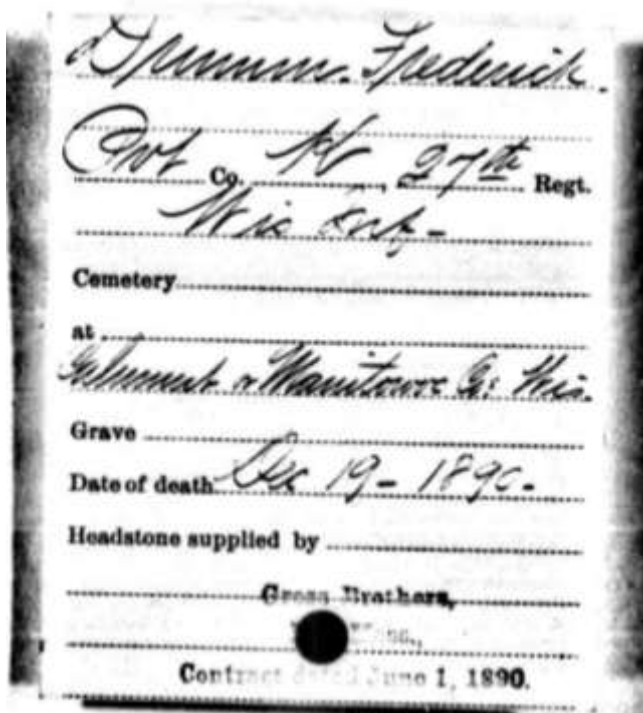 Drumm. Frederick.
Pvt Co. K, 27th Regt.
Wis Inf-
Cemetery
at
Manitowoc Co. Wis.
Grave
Date of death Dec 19- 1890-
Headstone supplied by
Gross Brothers,
Contract dated June 1, 1890.